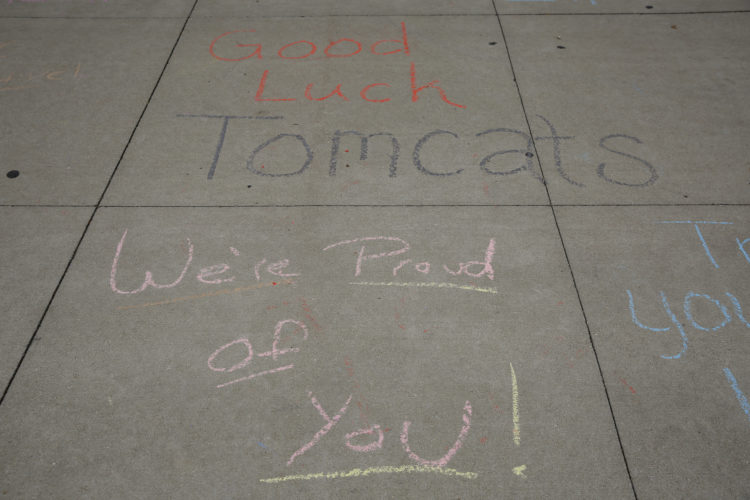 Good
Luch
Tomcats
We're Proud
of
you!
you